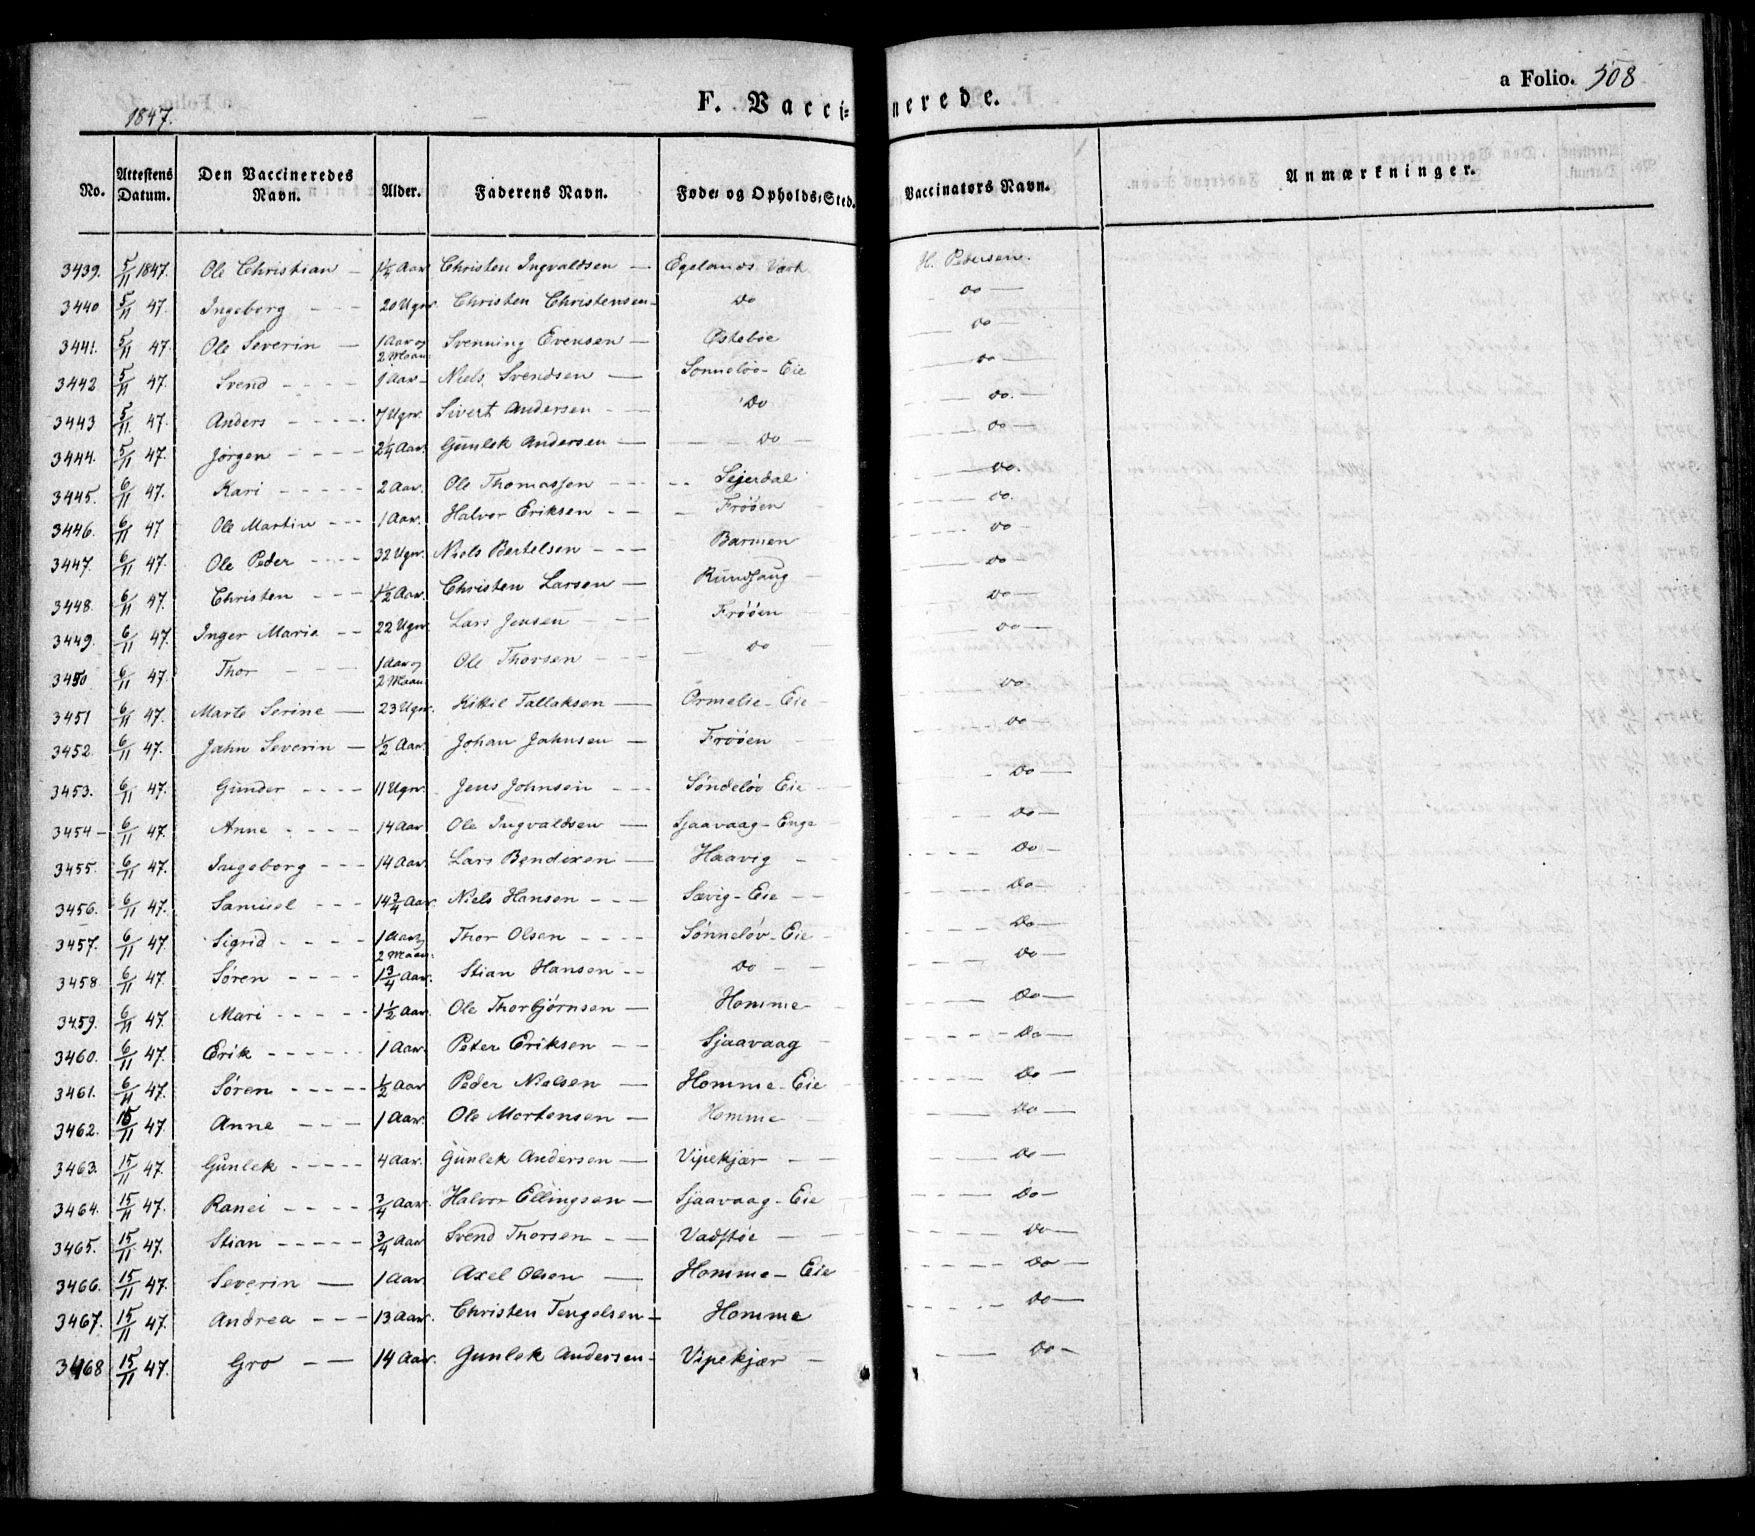 1847.
F. Vaccinerede.
a Folio. 508
No. | Attestens Datum. | Den Vaccineredes Navn. | Alder. | Faderens Navn. | Føde- og Opholds-Sted. | Vaccinators Navn. | Anmærkninger.
3439. 5/11 1847. Ole Christian — 1¼ Aar Christen Ingvaldsen — Egelands Værk H. Pedersen.
3440 5/11 47. Ingeborg - - - 20 Ugr. Christen Christensen - Do Do —
3441. 5/11 47. Ole Severin — 1 Aar og 2 Maan: Svenning Evensen — Østebøe — Do —
3442 5/11 47. Svend - - - - 1 Aar - Niels Svendsen — Sonneløv - Eie — Do —
3443 5/11 47. Anders - - - - 7 Ugr. Sivert Andersen - - Do Do. —
3444. 5/11 47. Jørgen - - - - 2¼ Aar. Gunlek Andersen — Do — Do —
3445. 6/11 47. Kari - - - - - 2 Aar. Ole Thomassen - - - Sejerdal Do.
3446. 6/11 47 Ole Martin - - - 1 Aar. Halvor Eriksen - - Frøöen Do.
3447. 6/11 47. Ole Peder - - - 32 Ugr. Niels Bertelsen - - - Barmen Do —
3448. 6/11 47. Christen - - - 1½ Aar. Christen Larsen — Rundhaug Do —
3449. 6/11 47. Inger Marie - - 22 Ugr. Lars Jensen - - Frøöen Do —
3450 6/11 47. Thor - - 1 Aar og 2 Maan Ole Thorsen - - - Do Do —
3451 6/11 47. Marte Serine — 23 Ugr. Kittil Tallaksen — Ormelie - Eie - Do
3452. 6/11 47. Jahn Severin — ½ Aar. Johan Jahnsen — Frøöen Do —
3453. 6/11 47. Gunder - - - - 11 Ugr. Jens Johnsen - - - Søndeløv Eie - Do —
3454 - 6/11 47. Anne - - - - 14 Aar Ole Ingvaldsen — Sjaavaag - Enge Do —
3455. 6/11 47. Ingeborg - - - 14 Aar. Lars Bendixen — Haavig - Do —
3456. 6/11 47. Samuel - - - 14¾ Aar. Niels Hansen - - - Sævig - Eie - - Do —
3457. 6/11 47. Sigrid - - - - 1 Aar og 2 Maan: Thor Olsen - - - - Sønneløv - Eie - Do —
3458 6/11 47. Søren - - - - 1¾ Aar. Stian Hansen - - Do - - Do —
3459. 6/11 47. Mari - - - - - 1½ Aar. Ole Thorbjørnsen — Homme - Do —
3460. 6/11 47. Erik - - - - - - 1 Aar. Peter Eriksen - - Sjaavaag - Do —
3461. 6/11 47. Søren - - - - - ½ Aar Peder Nielsen — Homme - Eie Do —
3462. 15/11 47 Anne - - - 1 Aar. Ole Mortensen — Homme - Do —
3463. 15/11 47. Gunlek - - - - - 4 Aar. Gunlek Andersen — Vipekjær - - Do —
3464. 15/11 47. Ranei - - - - ¾ Aar. Halvor Ellingsen — Sjaavaag - Eie Do -
3465. 15/11 47. Stian - - - - - ¾ Aar Svend Thorsen - - Vadstøe - Do —
3466. 15/11 47. Severin — 1 Aar. Axel Olsen — Homme - Eie Do —
3467. 15/11 47. Andrea - - - 13 Aar. Christen Tengelsen - Homme Do —
3468 15/11 47. Gro - — 14 Aar. Gunlek Andersen - Vipekjær - Do -